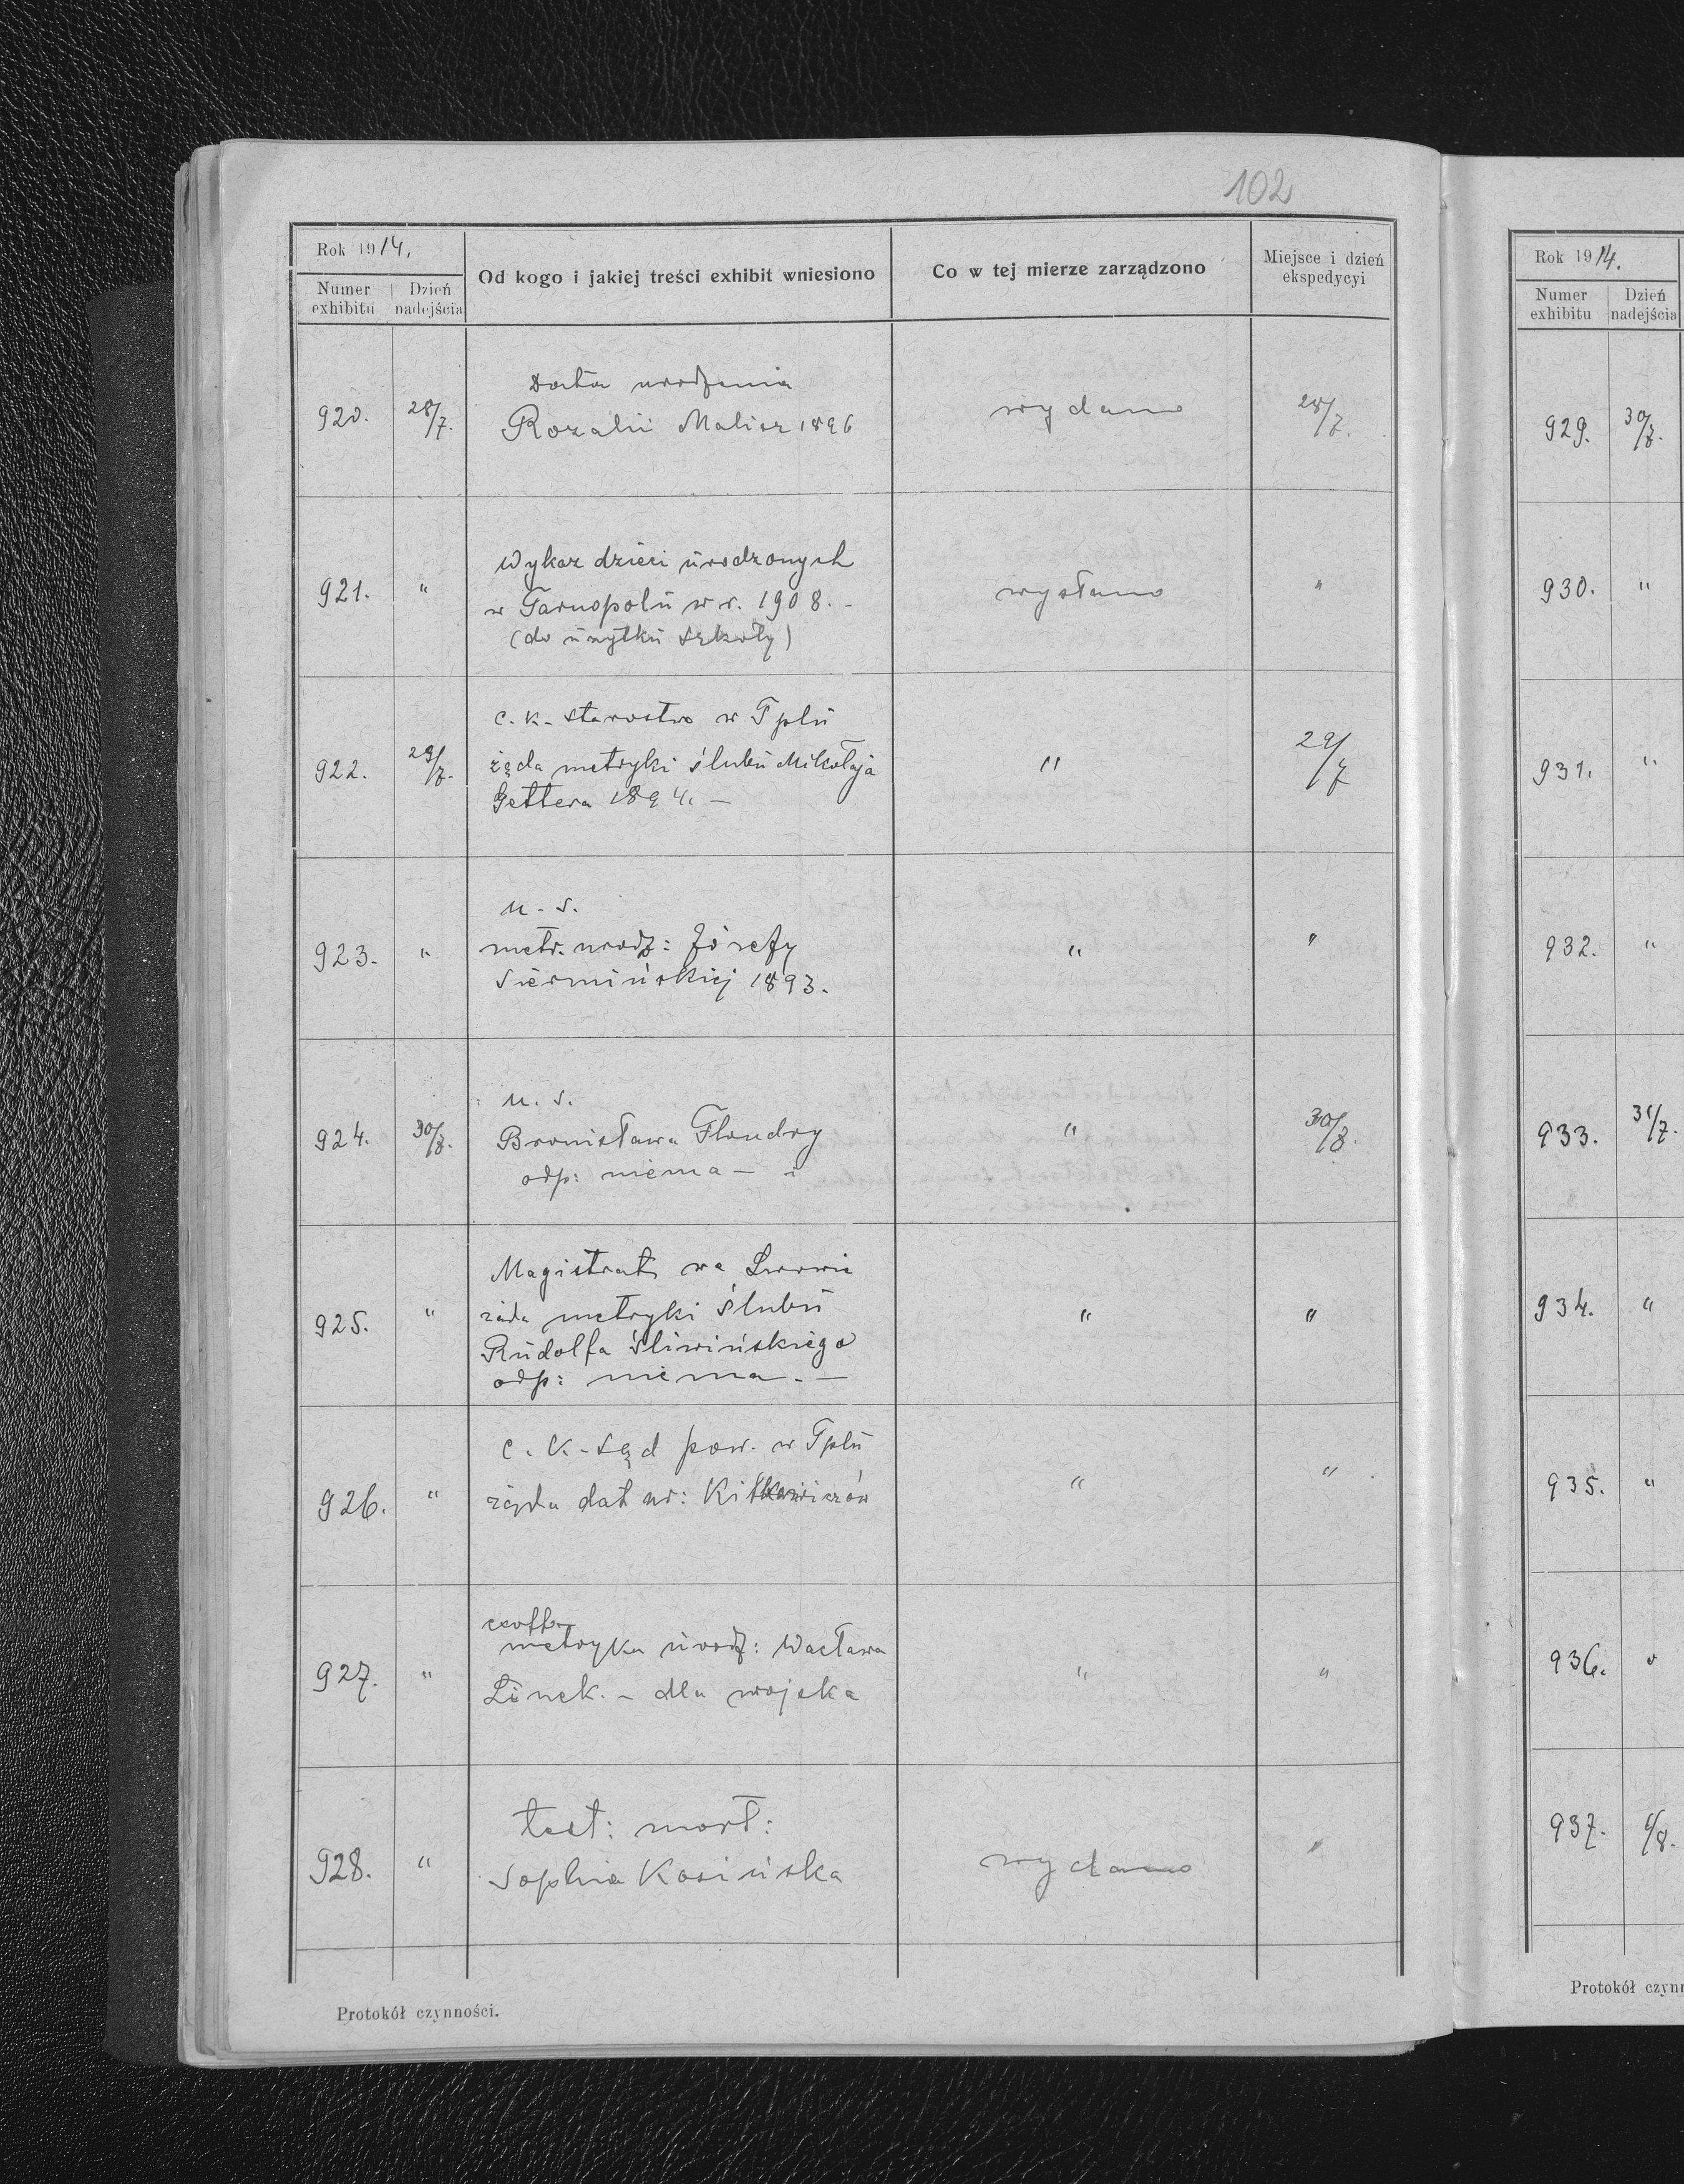 102
Rok 1914.
Numer exhibitu
Dzień nadejścia
Od kogo i jakiej treści exhibit wniesiono
Co w tej mierze zarządzono
Miejsce i dzień ekspedycyi
920. 28/7. Data urodzenia wydano 28/7.
Rozalii Malisz 1896
921. " Wykaz dzieci urodzonych wysłano "
w Tarnopolu w r. 1908. -
(do użytku szkoły)
922. 29/7. c. k. starostwo w Tplu " 29/7
żąda metryki ślubu Mikołaja
Gettera 1894. —
923. " u. s. " "
metr. urodz: Józefy
Siermińskiej 1893.
924. 30/7. u. s. " 30/7.
Bronisława Flondry
odp: niema —
925. " Magistrat we Lwowie " "
żąda metryki ślubu
Rudolfa Śliwińskiego
odp: niema. —
926. " c. k. sąd pow. w Tplu " "
żąda dat ur:
927. " " "
metryka urodz: Wacława
Linek. - dla wojska
928. " test: mort: wydano "
Sophia Kosińska
Protokół czynności.
Rok 1914.
Numer exhibitu
Dzień nadejścia
929. 30/7.
930. "
931. "
932. "
933. 31/7.
934. "
935. "
936. "
937. 1/8.
Protokół czynn